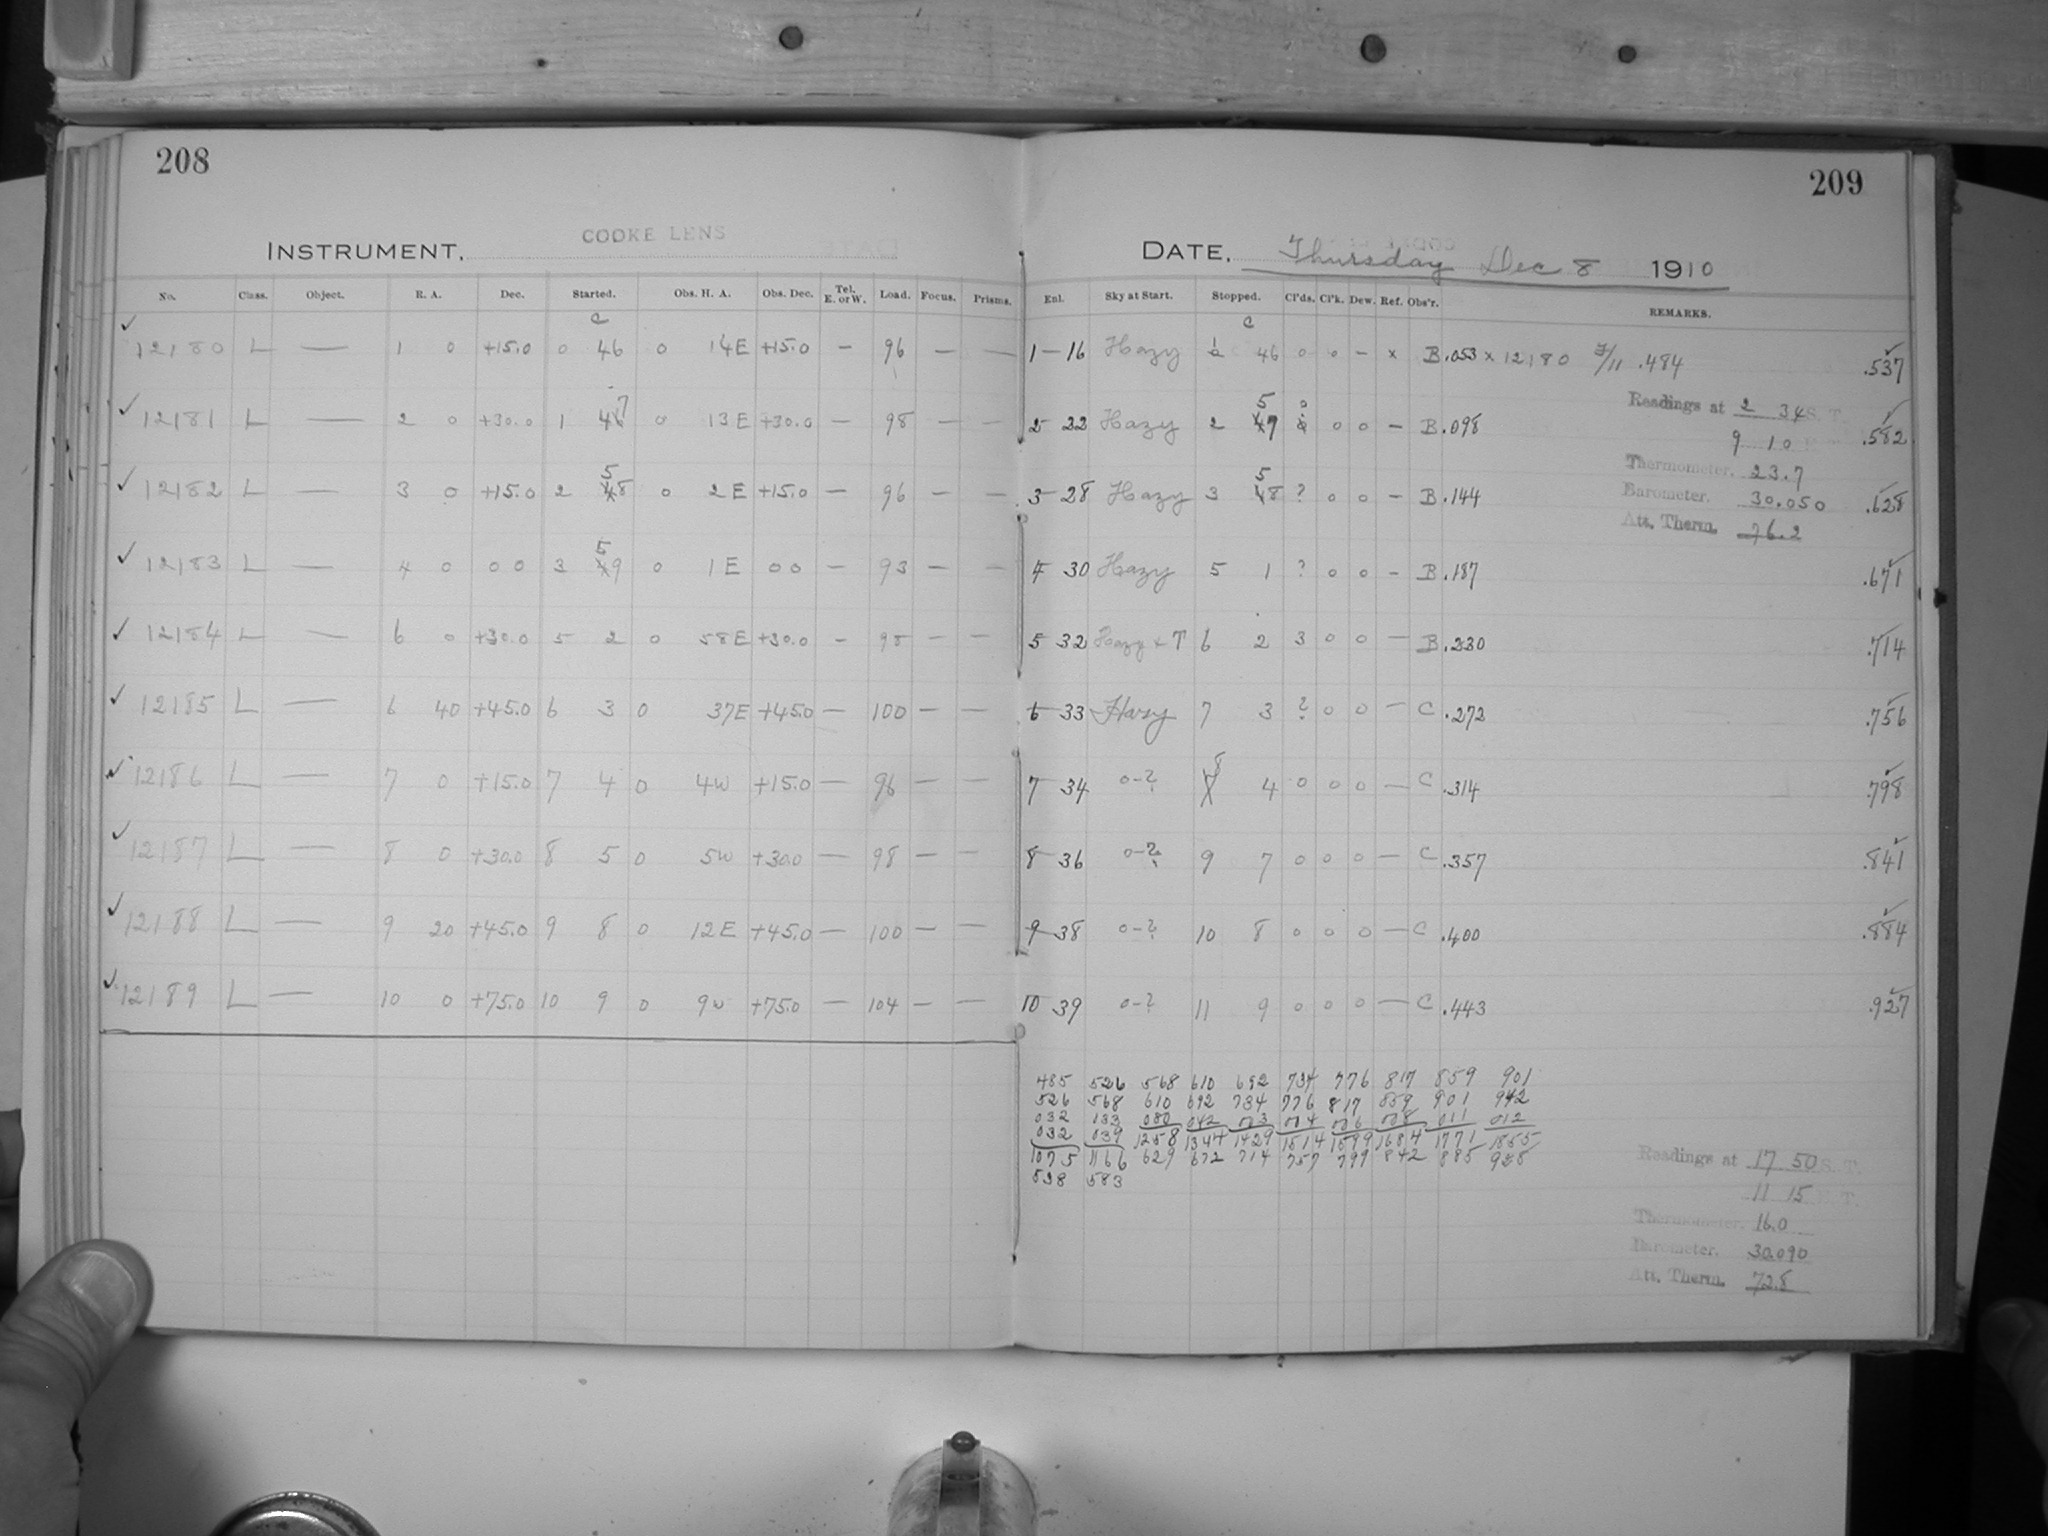 208
209
COOKE LENS
INSTRUMENT,
DATE, Thursday Dec 8 1910
No. Class. Object. R. A. Dec. Started. Obs. H. A. Obs. Dec. Tel. E. or W. Load. Focus. Prisms. Enl. Sky at Start. Stopped. Cl'ds. Cl'k. Dew. Ref. Obs'r. REMARKS.
c c
✓ 12180 L — 1 0 +15.0 0 46 0 14E +15.0 — 96 — — 1 — 16 Hazy 1 46 0 0 — x B .053 x 12180 7/11 .484 .537
✓ 12181 L — 2 0 +30.0 1 47 0 13E +30.0 — 98 — — 2 22 Hazy 2 57 0 0 0 — B .098 .582
Readings at 2 34 S. T.
9 10
✓ 12182 L — 3 0 +15.0 2 58 0 2E +15.0 — 96 — — 3 — 28 Hazy 3 58 ? 0 0 — B .144 .628
Thermometer. 23.7
Barometer. 30.050
Att. Therm. 76.2
✓ 12183 L — 4 0 0 0 3 59 0 1E 0 0 — 93 — — 4 30 Hazy 5 1 ? 0 0 — B .187 .671
✓ 12184 L — 6 0 +30.0 5 2 0 58E +30.0 — 98 — — 5 32 Hazy + T 6 2 3 0 0 — B .230 .714
✓ 12185 L — 6 40 +45.0 6 3 0 37E +45.0 — 100 — — 6 33 Hazy 7 3 ? 0 0 — C .272 .756
✓ 12186 L — 7 0 +15.0 7 4 0 4W +15.0 — 96 — — 7 34 0-? 8 4 0 0 0 — C .314 .798
✓ 12187 L — 8 0 +30.0 8 5 0 5W +30.0 — 98 — — 8 36 0-? 9 7 0 0 0 — C .357 .841
✓ 12188 L — 9 20 +45.0 9 8 0 12E +45.0 — 100 — — 9 38 0-? 10 8 0 0 0 — C .400 .884
✓ 12189 L — 10 0 +75.0 10 9 0 9W +75.0 — 104 — — 10 39 0-? 11 9 0 0 0 — C .443 .927
485 526 568 610 692 734 776 817 859 901
526 568 610 692 734 776 817 859 901 942
032 033 080 042 003 004 006 008 011 012
032 039 1258 1344 1429 1514 1599 1684 1771 1855
1075 1166 629 672 714 757 799 842 885 928
538 583
Readings at 17 50 S. T.
11 15
Thermometer. 16.0
Barometer. 30.090
Att. Therm. 72.8